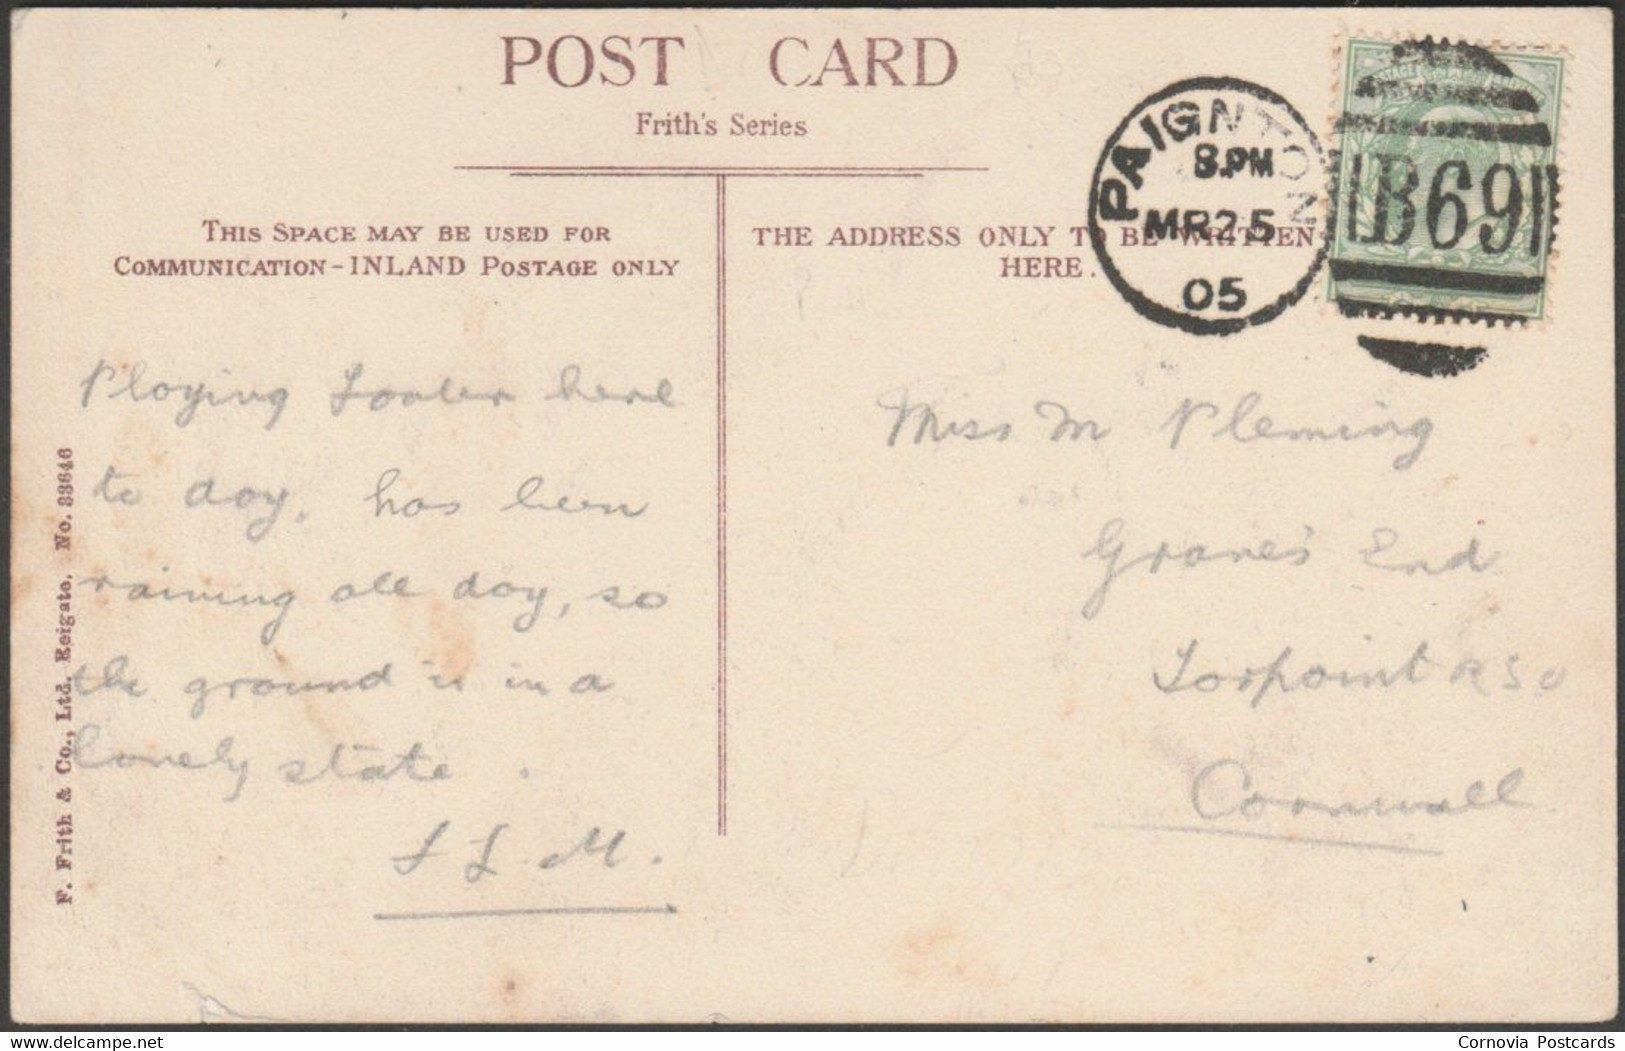 POST CARD
Frith's Series
THIS SPACE MAY BE USED FOR
COMMUNICATION-INLAND POSTAGE ONLY
THE ADDRESS ONLY TO BE WRITTEN
HERE.
PAIGNTON
8.PM
MR25
05
B69
POSTAGE
Playing here
to day. has been
raining all day, so
the ground is in a
lovely state.
M.
Miss M Fleming
Grave's End
Torpoint RSO
Cornwall
F. Frith & Co., Ltd. Reigate. No. 33646
delcampe.net
Cornovia Postcards